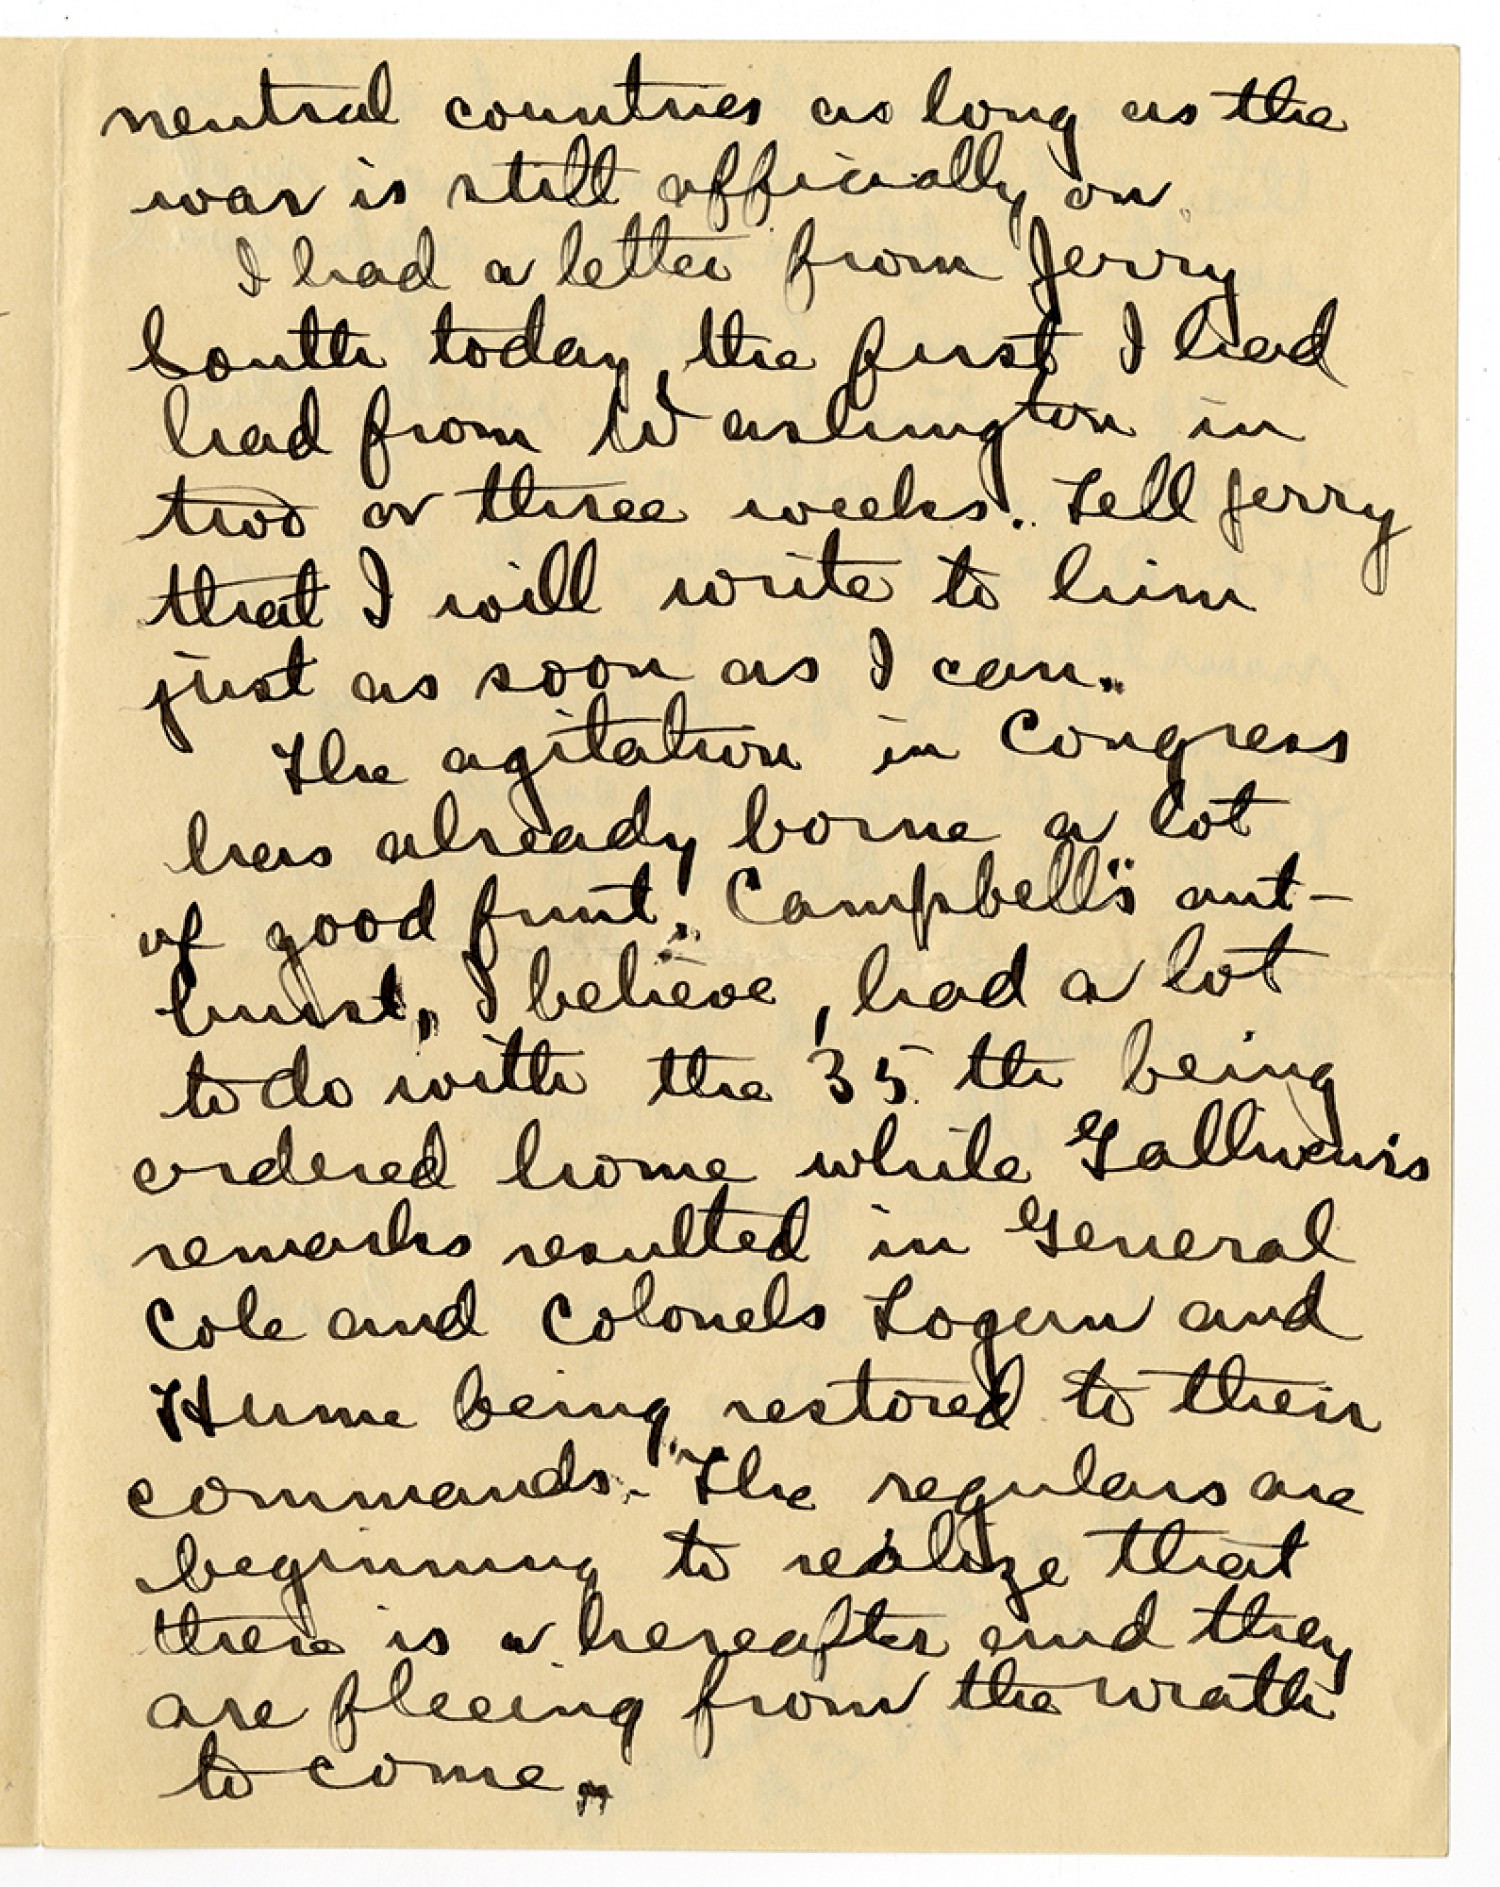 neutral countries as long as the
war is still officially on.
I had a letter from Jerry
South today, the first I had
had from Washington in
two or three weeks. Tell Jerry
that I will write to him
just as soon as I can.
The agitation in Congress
has already borne a lot
of good fruit. Campbell's out-
burst, I believe, had a lot
to do with the 35th being
ordered home while Gallivan's
remarks resulted in General
Cole and Colonels Logan and
Hume being restored to their
commands. The regulars are
beginning to realize that
there is a hereafter and they
are fleeing from the wrath
to come.